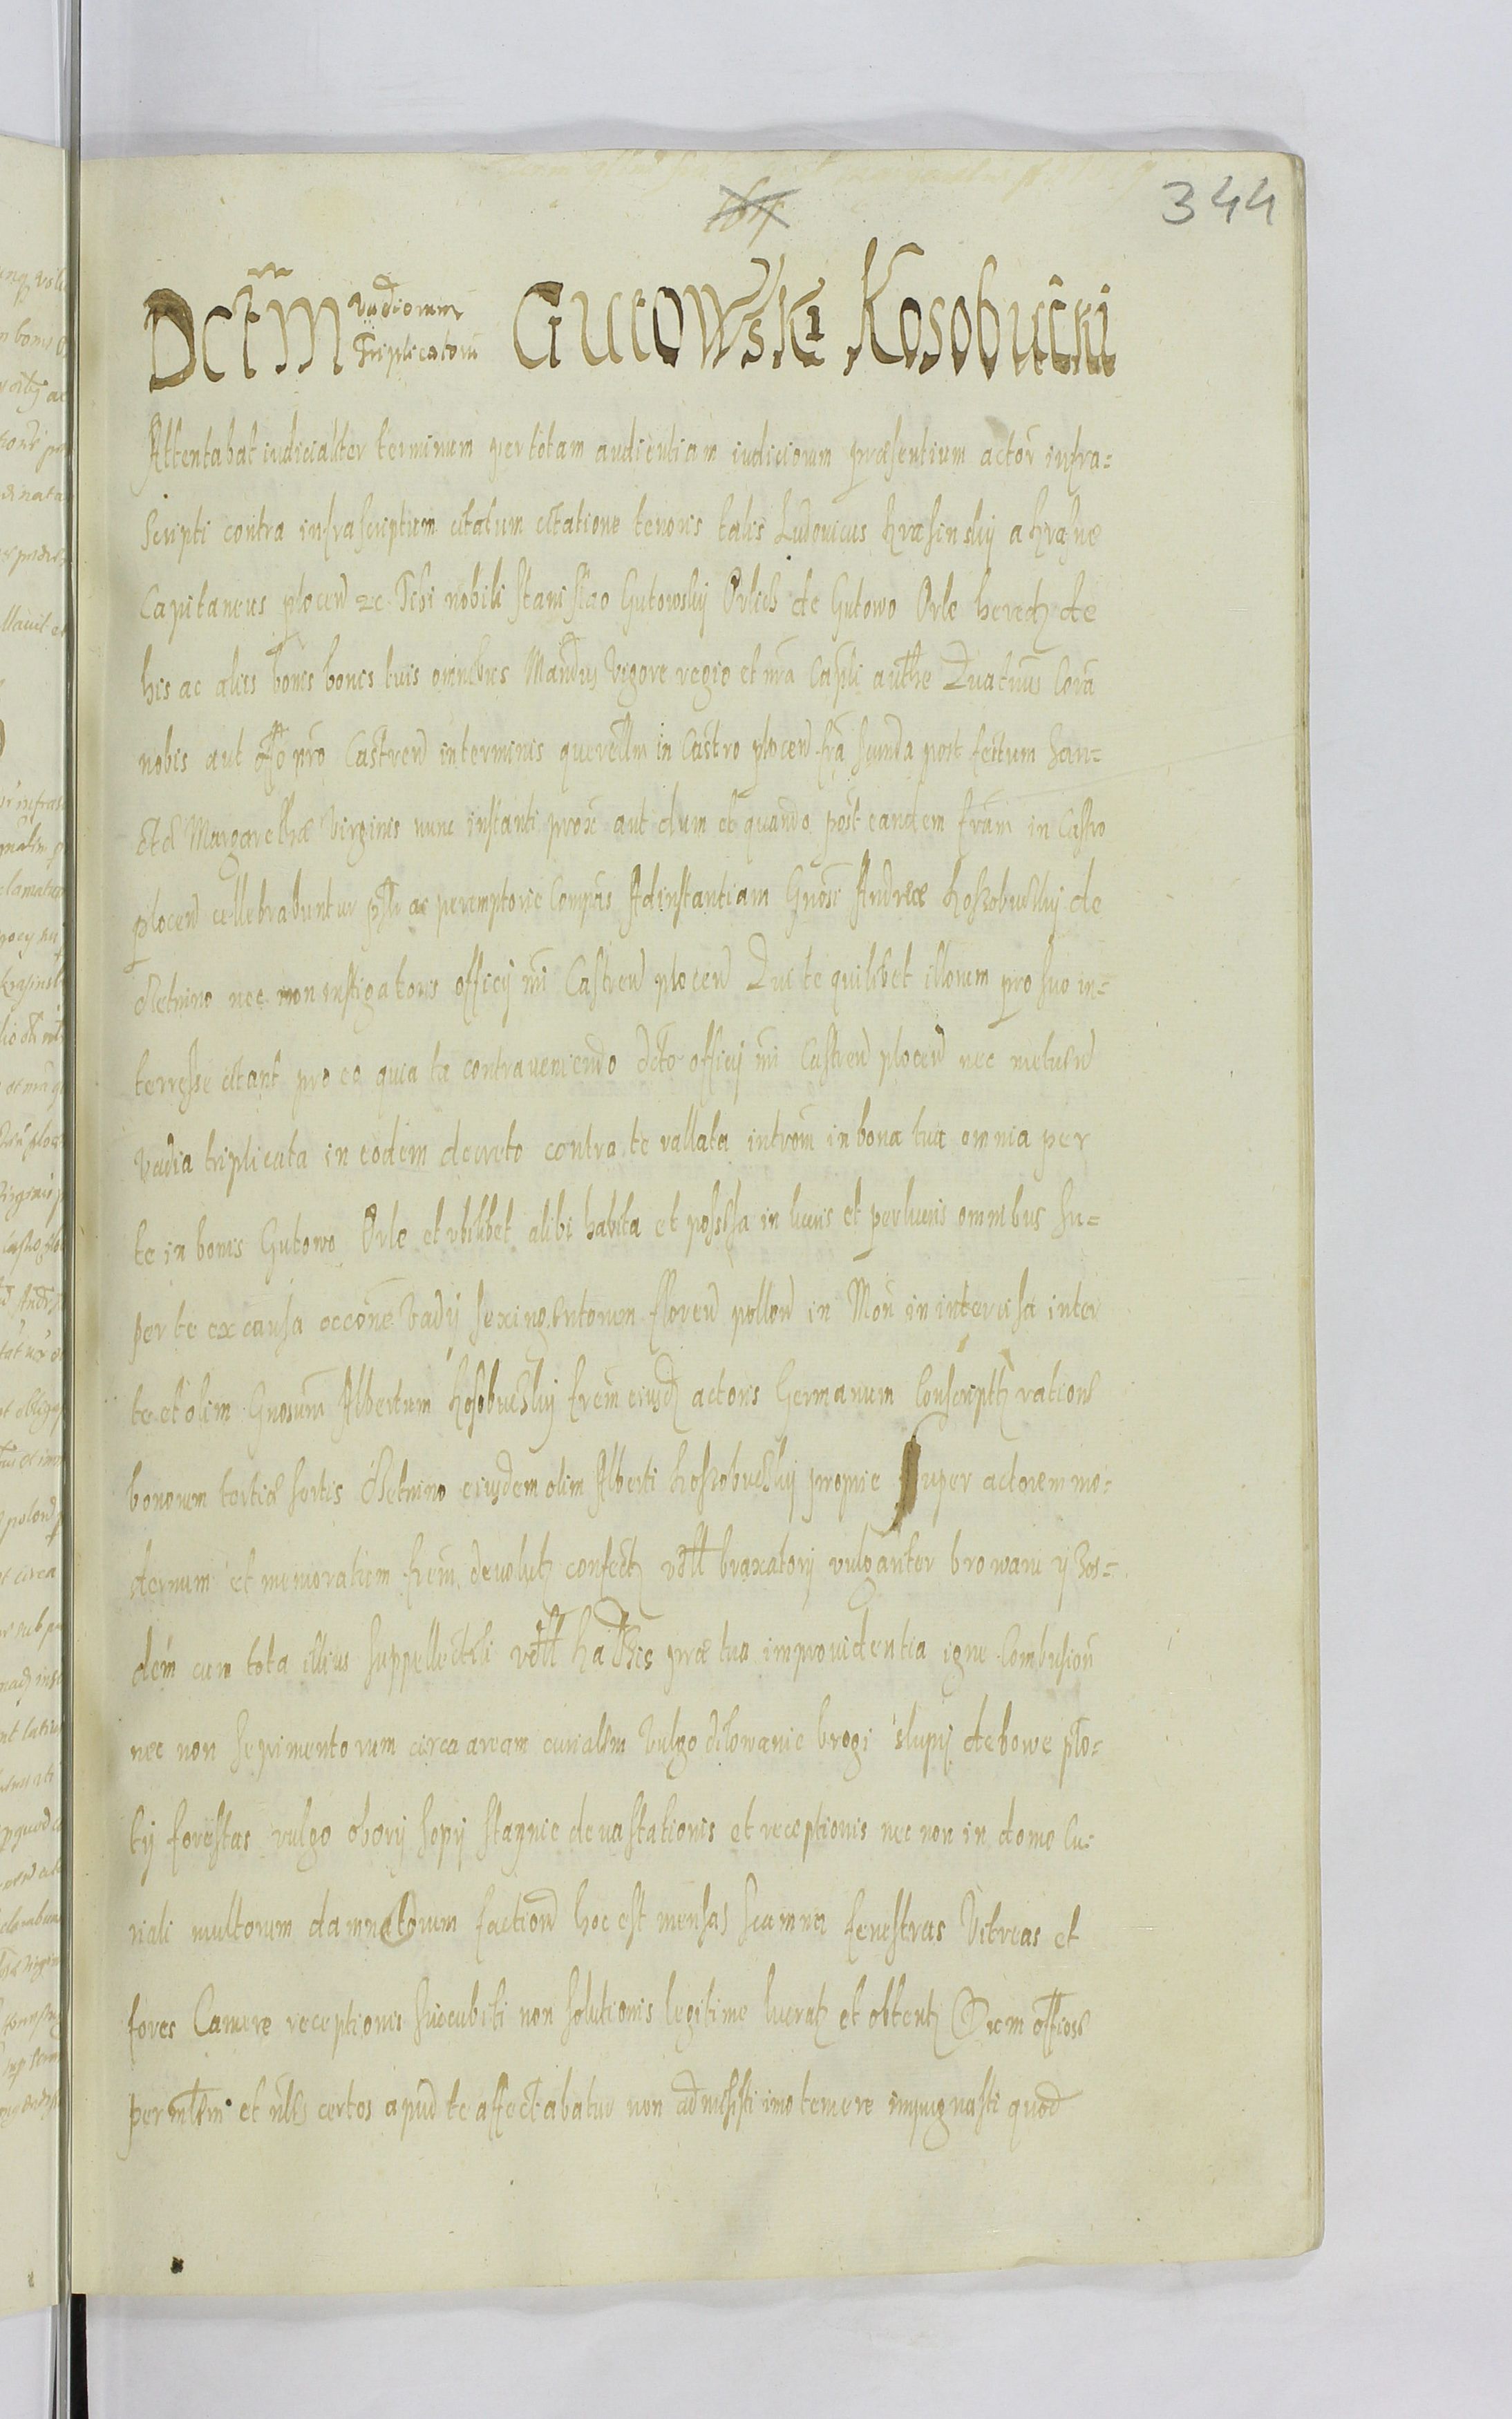 344
Dctm vadiorum Triplicatoru Gutowski Kosobucki
Attentabat iudicialiter terminum per totam audientiam iudiciorum præsentium actor infra=
scripti contra infrascriptum citatum citatione tenoris talis Ludouicus Krasinskij a Krasne
Capitaneus plocen zc Tibi nobili Stanislao Gutowskij Orlik de Gutowo Orle hered de
his ac aliis bonis bonis tuis omnibus Mandus vigore regio et nra Capli authe Quatnus Cora
nobis aut offo nro Castren in terminis querellm in Castro plocen fra scunda post festum San=
ctæ Margarethæ Virginis nunc instanti prox aut dum et quando post eandem fram in Castro
plocen cellebrabuntur psr ac peremptorie Compas Ad instantiam Gnosi Andreæ Kossobuckij de
Cetnino nec non instigatoris officij nri Castren plocen Qui te quilibet illorum pro suo in=
terresse citant pro eo quia tu contraueniendo dcto officij nri Castren plocen nec metuen
vadia triplicata in eodem decreto contra te vallata introm in bona tua omnia per
te in bonis Gutowo Orle et vbilibet alibi habita et possessa in lucris et perlucris omnibus su=
per te ex causa occone vadij sexingentorum floren pollon in Mon in intercisa inter
te et olim Gnosum Albertum Kosobuckij frem eiusd actoris Germanum Conscript ration
bonorum tertiæ sortis Cetnino eiusdem olim Alberti Kossobuckij proprie Super actorem mo=
dernum et memoratum frem deuolut confect vdtt braxatorij vulganter browaru y zos=
dem cum tota illius suppellectili vdtt præ tua improuidentia igne Combusion
nec non sepimentorum circa aream curialem Vulgo dilowanie brogi slupij debowe plo=
tij forestas vulgo oborij sopij staynie deuastationis et receptionis nec non in domo Cu=
riali multorum damnatorum faction hoc est mensas scamna fenestras Vitreas et
fores Camere receptionis succubiti non solutionis legitime lucrat et obtent Quem offios
per mtrm et nbls certos apud te affectabatur non admisisti imo temere impugnasti quod